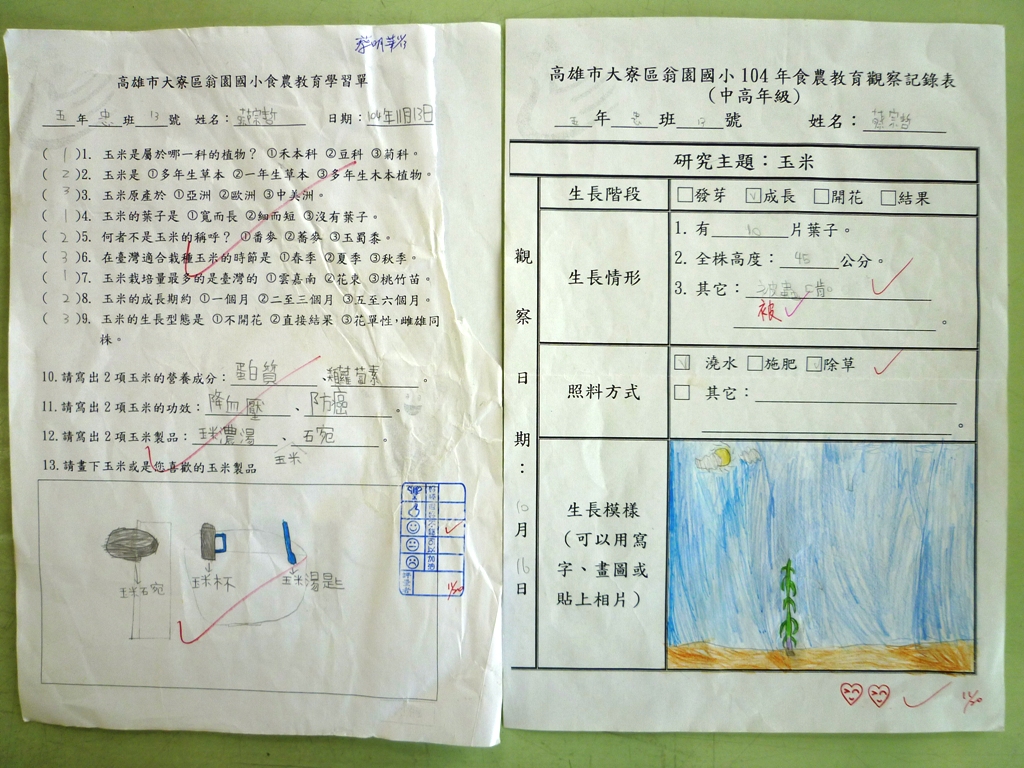 高雄市大寮區翁園國小食農教育學習單
五年忠班13號 姓名：蔬宗哲 日期：104年11月13日
(1)1. 玉米是屬於哪一科的植物？ ①禾本科 ②豆科 ③菊科。
(2)2. 玉米是 ①多年生草本 ②一年生草本 ③多年生木本植物。
(3)3. 玉米原產於 ①亞洲 ②歐洲 ③中美洲。
(1)4. 玉米的葉子是 ①寬而長 ②細而短 ③沒有葉子。
(2)5. 何者不是玉米的稱呼？ ①番麥 ②蕎麥 ③玉蜀黍。
(3)6. 在臺灣適合栽種玉米的時節是 ①春季 ②夏季 ③秋季。
(1)7. 玉米栽培量最多的是臺灣的 ①雲嘉南 ②花東 ③桃竹苗。
(2)8. 玉米的成長期約 ①一個月 ②二至三個月 ③五至六個月。
(3)9. 玉米的生長型態是 ①不開花 ②直接結果 ③花單性，雌雄同
株。
10.請寫出2項玉米的營養成分：蛋白質、胡蘿蔔素。
11.請寫出2項玉米的功效：降血壓、防癌。
12.請寫出2項玉米製品：玉米濃湯、石宛。
玉米
13.請畫下玉米或是您喜歡的玉米製品
玉米石宛
玉米杯
玉米湯匙
11/20
高雄市大寮區翁園國小104年食農教育觀察記錄表
（中高年級）
五年忠班13號 姓名：
研究主題：玉米
觀察日期：10月16日
生長階段 □發芽 ☑成長 □開花 □結果
生長情形
1. 有10片葉子。
2. 全株高度：45公分。
3. 其它：
被
。
照料方式
☑ 澆水 □施肥 ☑除草
□ 其它：
。
生長模樣
（可以用寫
字、畫圖或
貼上相片）